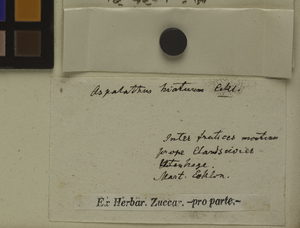 Aspalathus hirtum Eckl.
Inter frutices montium
prope Elandsrivier
Uitenhage.
Mart. Ecklon.
Ex Herbar. Zuccar. -pro parte.-